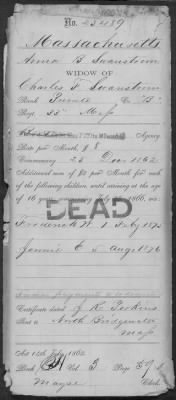 No. 23489
Massachusetts
Anna B. Swanstrom
WIDOW OF
Charles F. Swanstrom
Rank Private Co. "B"
Regt. 33" Mass
Agency
Rate per Month, $8
Commencing 23 Dec 1862
Additional sum of $2 per Month for each of
the following children, until arriving at the age
of 16 years, commencing July 25, 1866, viz:
DEAD
Frederick W. 1 Feby 1873
Jennie C 5 Aug 1876
Certificate dated
J. R. Perkins
North Bridgewater
Mass
Act 14th July, 1862.
Book Vol. 3 Page
Clerk.